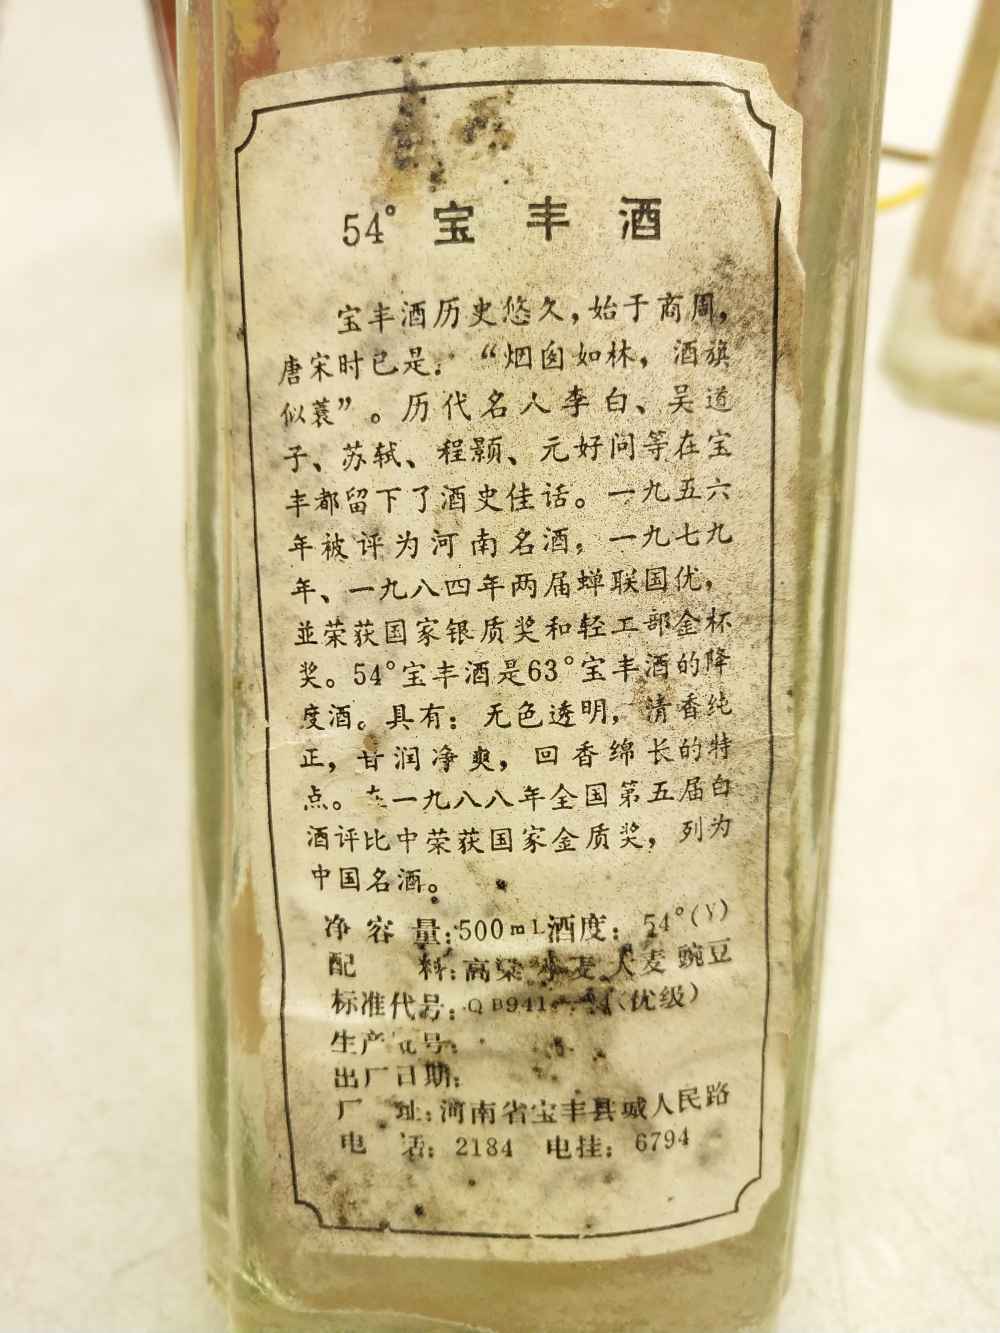 54°宝丰酒
宝丰酒历史悠久，始于商周，
唐宋时已是：“烟囱如林，酒旗
似蓑”。历代名人李白、吴道
子、苏轼、程颢、元好问等在宝
丰都留下了酒史佳话。一九五六
年被评为河南名酒，一九七九
年、一九八四年两届蝉联国优，
並荣获国家银质奖和轻工部金杯
奖。54°宝丰酒是63°宝丰酒的降
度酒。具有：无色透明，清香纯
正，甘润净爽，回香绵长的特
点。在一九八八年全国第五届白
酒评比中荣获国家金质奖，列为
中国名酒。
净容量：500mL酒度：54°(V)
配料：高粱 小麦 大麦 豌豆
标准代号：QB941 （优级）
生产批号：
出厂日期：
厂址：河南省宝丰县城人民路
电话：2184 电挂：6794